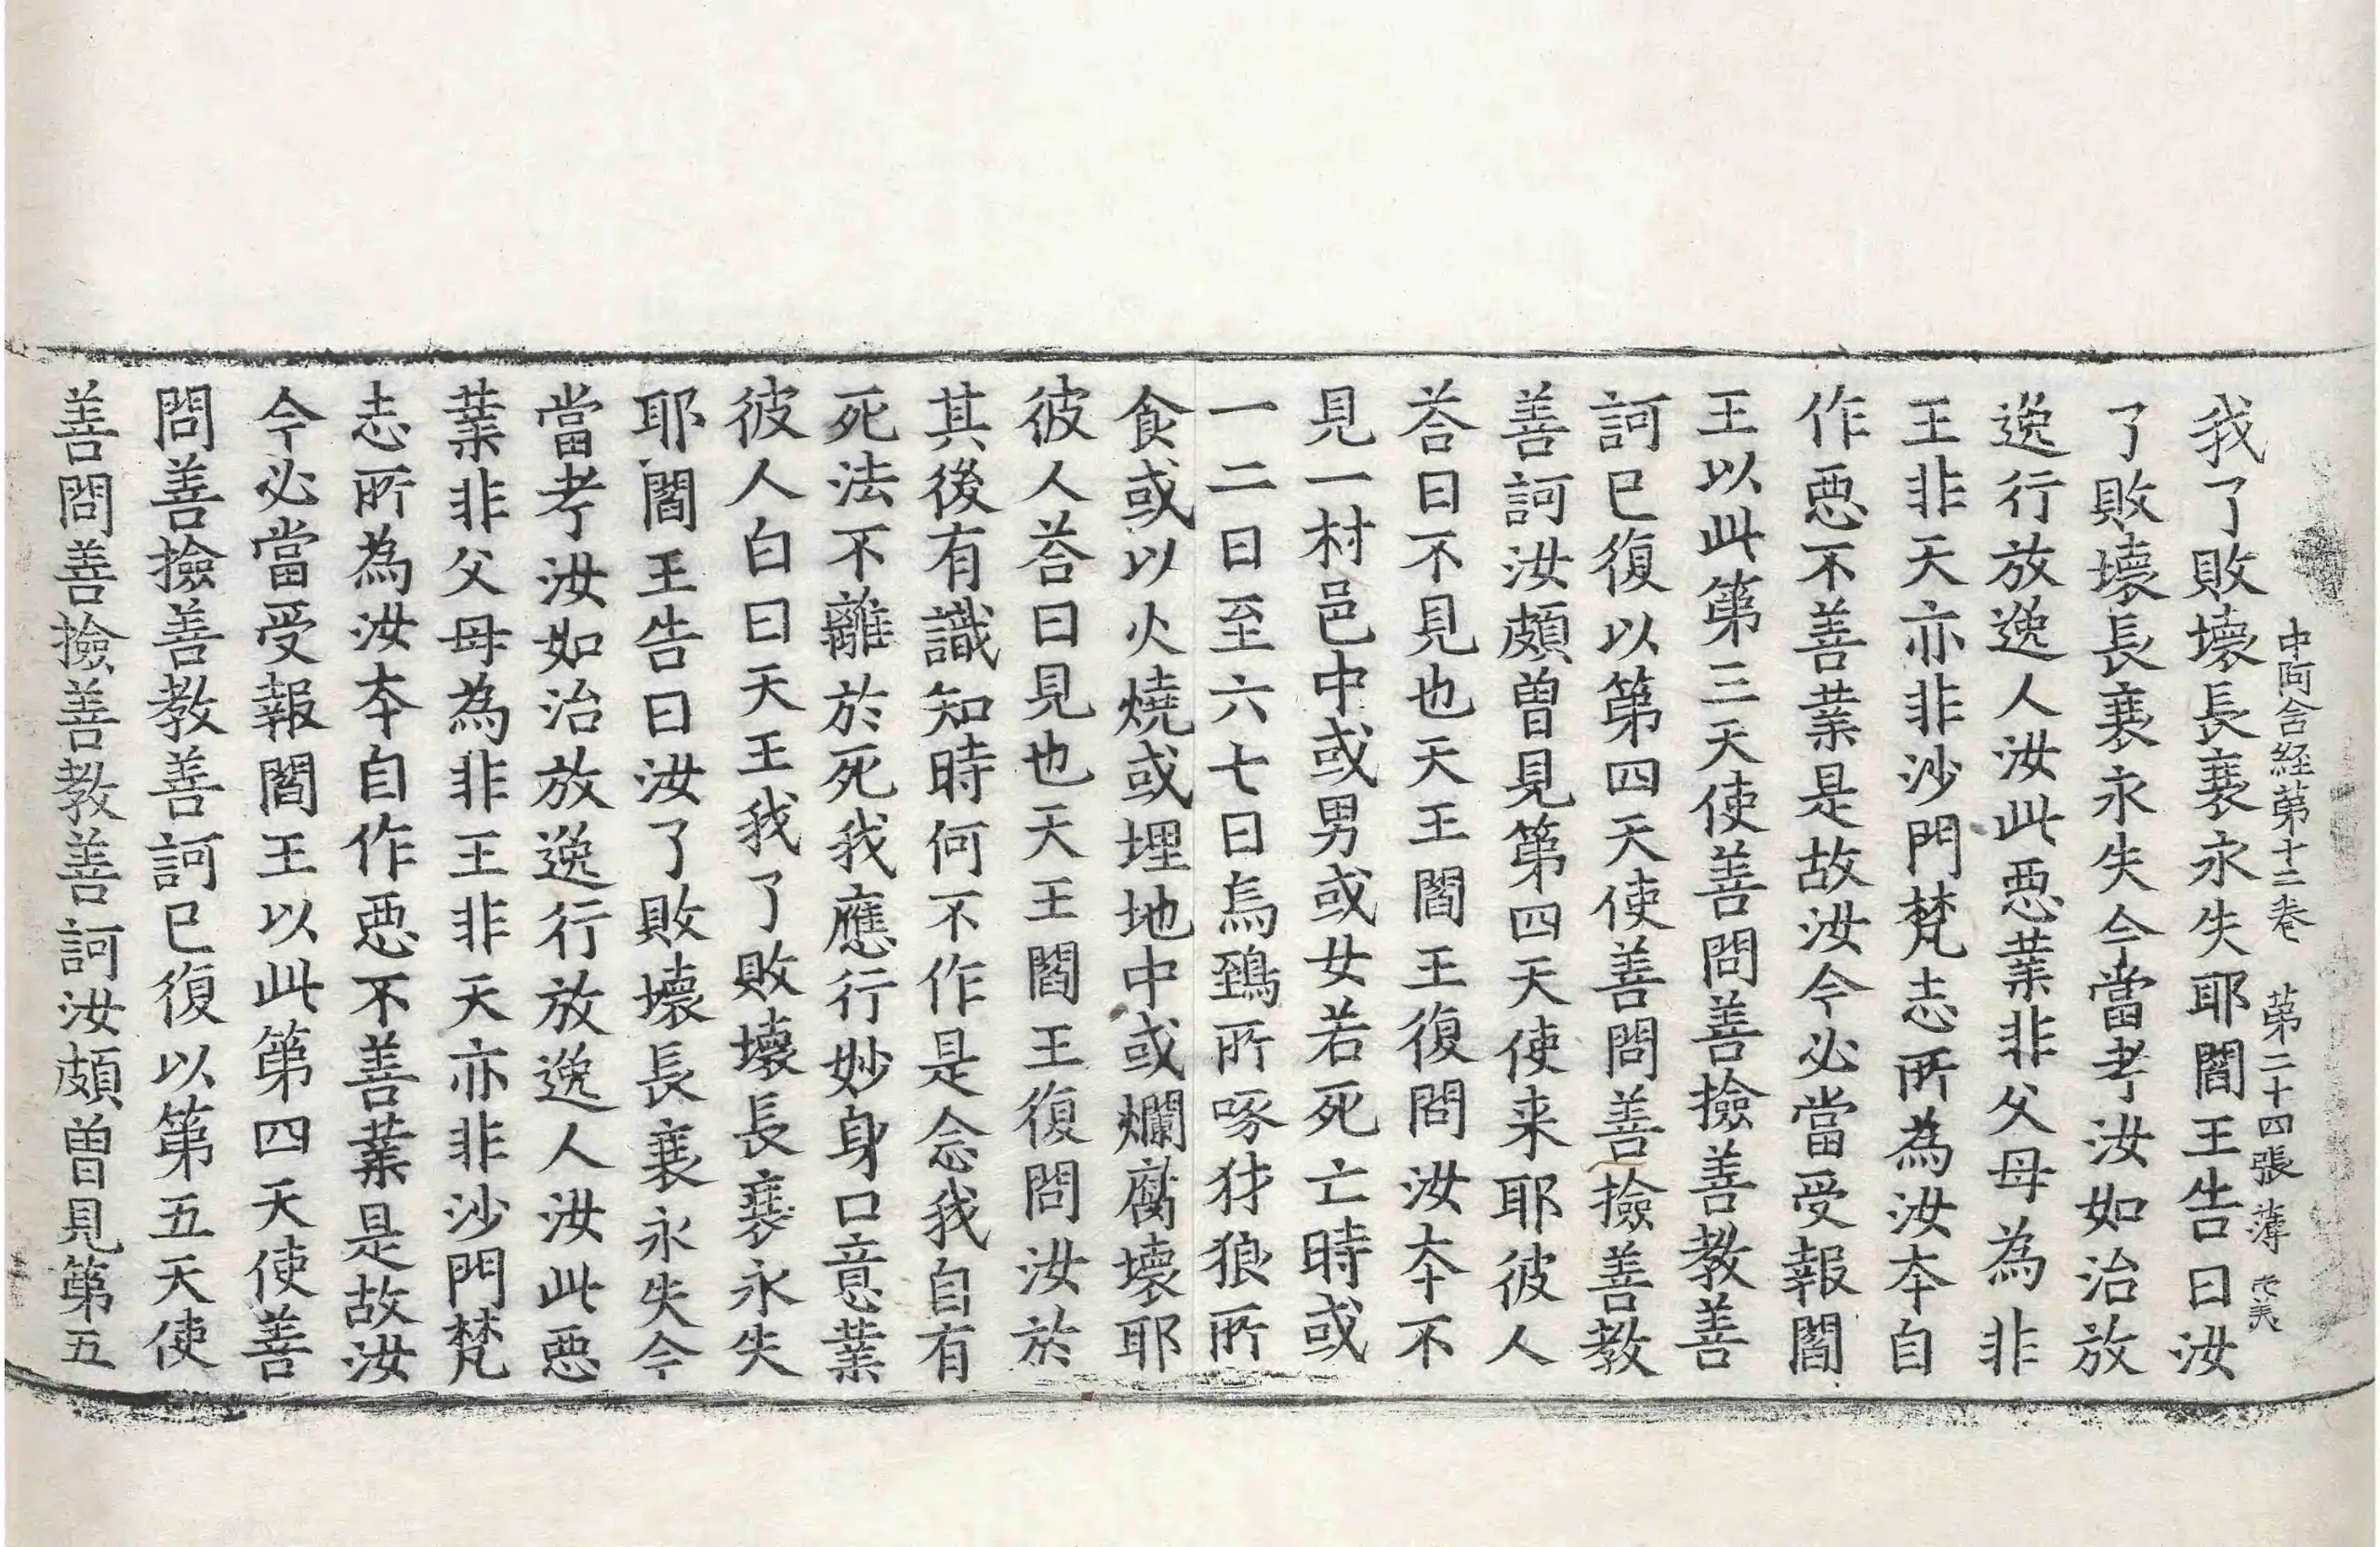 中阿含経第十二卷 第二十四張 薄
我了敗壞長衰永失耶閻王告曰汝
了敗壞長衰永失今當考汝如治放
逸行放逸人汝此惡業非父母為非
王非天亦非沙門梵志所為汝夲自
作惡不善業是故汝今必當受報閻
王以此第三天使善問善撿善教善
訶已復以第四天使善問善撿善教
善訶汝頗曽見第四天使来耶彼人
荅曰不見也天王閻王復問汝夲不
見一村邑中或男或女若死亡時或
一二日至六七日烏鵄所啄犲狼所
食或以火燒或埋地中或爛腐壞耶
彼人荅曰見也天王閻王復問汝於
其後有識知時何不作是念我自有
死法不離於死我應行妙身口意業
彼人白曰天王我了敗壞長衰永失
耶閻王告曰汝了敗壞長衰永失今
當考汝如治放逸行放逸人汝此惡
業非父母為非王非天亦非沙門梵
志所為汝夲自作惡不善業是故汝
今必當受報閻王以此第四天使善
問善撿善教善訶已復以第五天使
善問善撿善教善訶汝頗曽見第五